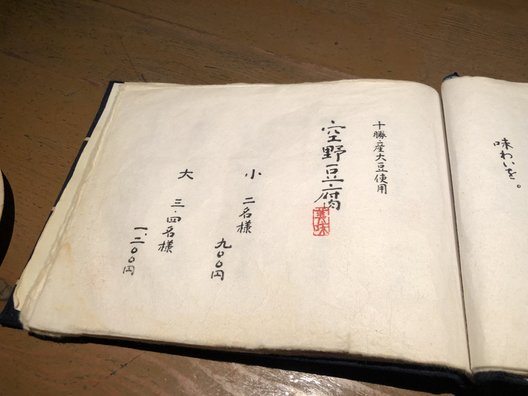 味わいを。
十勝産大豆使用
空野豆腐
美味
小 二名様 九〇〇円
大 三・四名様 一、二〇〇円